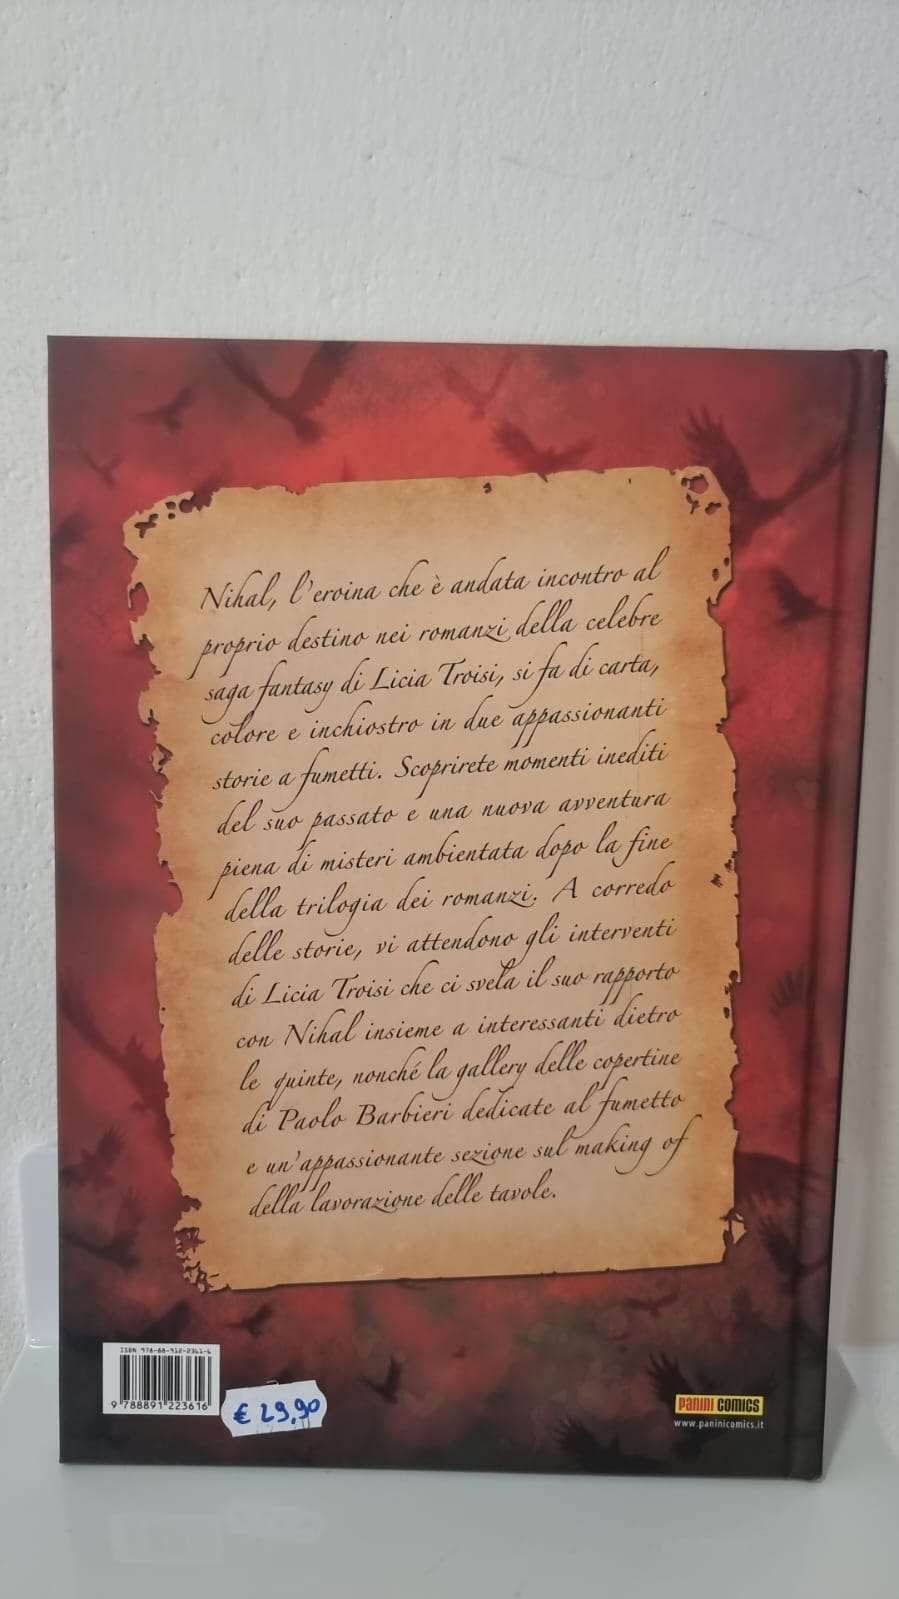 Nihal, l'eroina che è andata incontro al
proprio destino nei romanzi della celebre
saga fantasy di Licia Troisi, si fa di carta,
colore e inchiostro in due appassionanti
storie a fumetti. Scoprirete momenti inediti
del suo passato e una nuova avventura
piena di misteri ambientata dopo la fine
della trilogia dei romanzi. A corredo
delle storie, vi attendono gli interventi
di Licia Troisi che ci svela il suo rapporto
con Nihal insieme a interessanti dietro
le quinte, nonché la gallery delle copertine
di Paolo Barbieri dedicate al fumetto
e un'appassionante sezione sul making of
della lavorazione delle tavole.
ISBN 978-88-912-2361-6
9 788891 223616
€ 29,90
PANINI COMICS
www.paninicomics.it